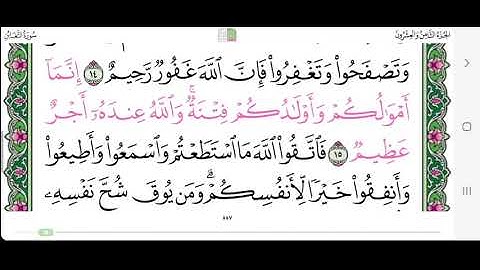 الجزء الثامن والعشرون
سورة التغابن
وَتَصْفَحُوا۟ وَتَغْفِرُوا۟ فَإِنَّ ٱللَّهَ غَفُورٌ رَّحِيمٌ ١٤ إِنَّمَآ
أَمْوَٰلُكُمْ وَأَوْلَٰدُكُمْ فِتْنَةٌ ۚ وَٱللَّهُ عِندَهُۥٓ أَجْرٌ
عَظِيمٌ ١٥ فَٱتَّقُوا۟ ٱللَّهَ مَا ٱسْتَطَعْتُمْ وَٱسْمَعُوا۟ وَأَطِيعُوا۟
وَأَنفِقُوا۟ خَيْرًا لِّأَنفُسِكُمْ ۗ وَمَن يُوقَ شُحَّ نَفْسِهِۦ
٥٥٧